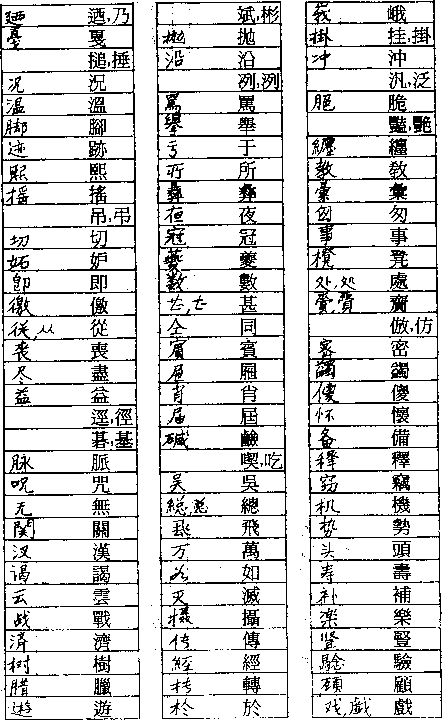 廼 迺,乃
戛
搥,捶
况 況
温 溫
脚 腳
迹 跡
熙 熙
揺 搖
吊,弔
切 切
妬 妒
卽 即
傲
従,从 從
丧 喪
尽 盡
益 益
逕,徑
碁,基
脉 脈
呪 咒
无 無
関 關
汉 漢
谒 謁
云 雲
战 戰
済 濟
树 樹
腊 臘
遊 遊
斌,彬
抛 拋
沿 沿
冽,列
罵 罵
舉
亏 于
所 所
彝 彝
夜 夜
冠 冠
夔 夔
数 數
甚
仝 同
賓 賓
凮
肖 肖
届 屆
碱 鹼
喫,吃
吴 吳
総,总 總
飛
万 萬
如
灭 滅
摄 攝
传 傳
経 經
転 轉
於 於
峩 峨
掛 挂,掛
冲 沖
汎,泛
脃 脆
豔,艷
纏 纏
教 敎
彙 彙
匆 匆
事 事
凳 凳
处,処 處
賫,賷 齎
倣,仿
密 密
蠲 蠲
傻 傻
怀 懷
备 備
釋 釋
窃 竊
机 機
势 勢
头 頭
寿 壽
补 補
楽 樂
賢 豎
驗 驗
顧 顧
戏,戯 戲